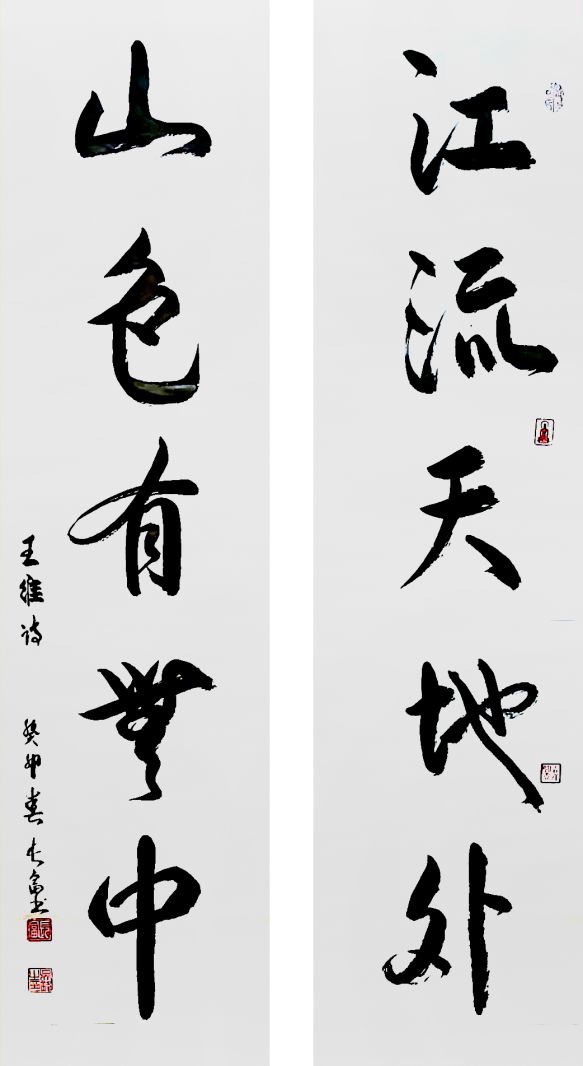 江流天地外
山色有無中
王維诗
癸卯春